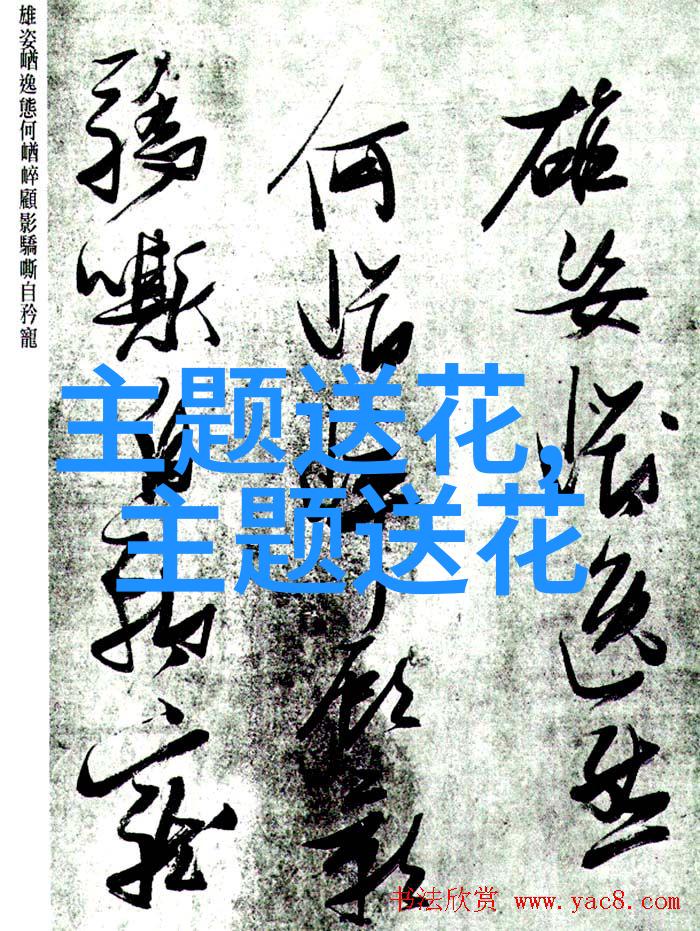 雄姿崷逸態
何崷崒顧影
驕嘶自矜寵
雄姿崷逸態何崷崒顧影驕嘶自矜寵
主题送花,
主题送花
书法欣赏 www.yac8.com